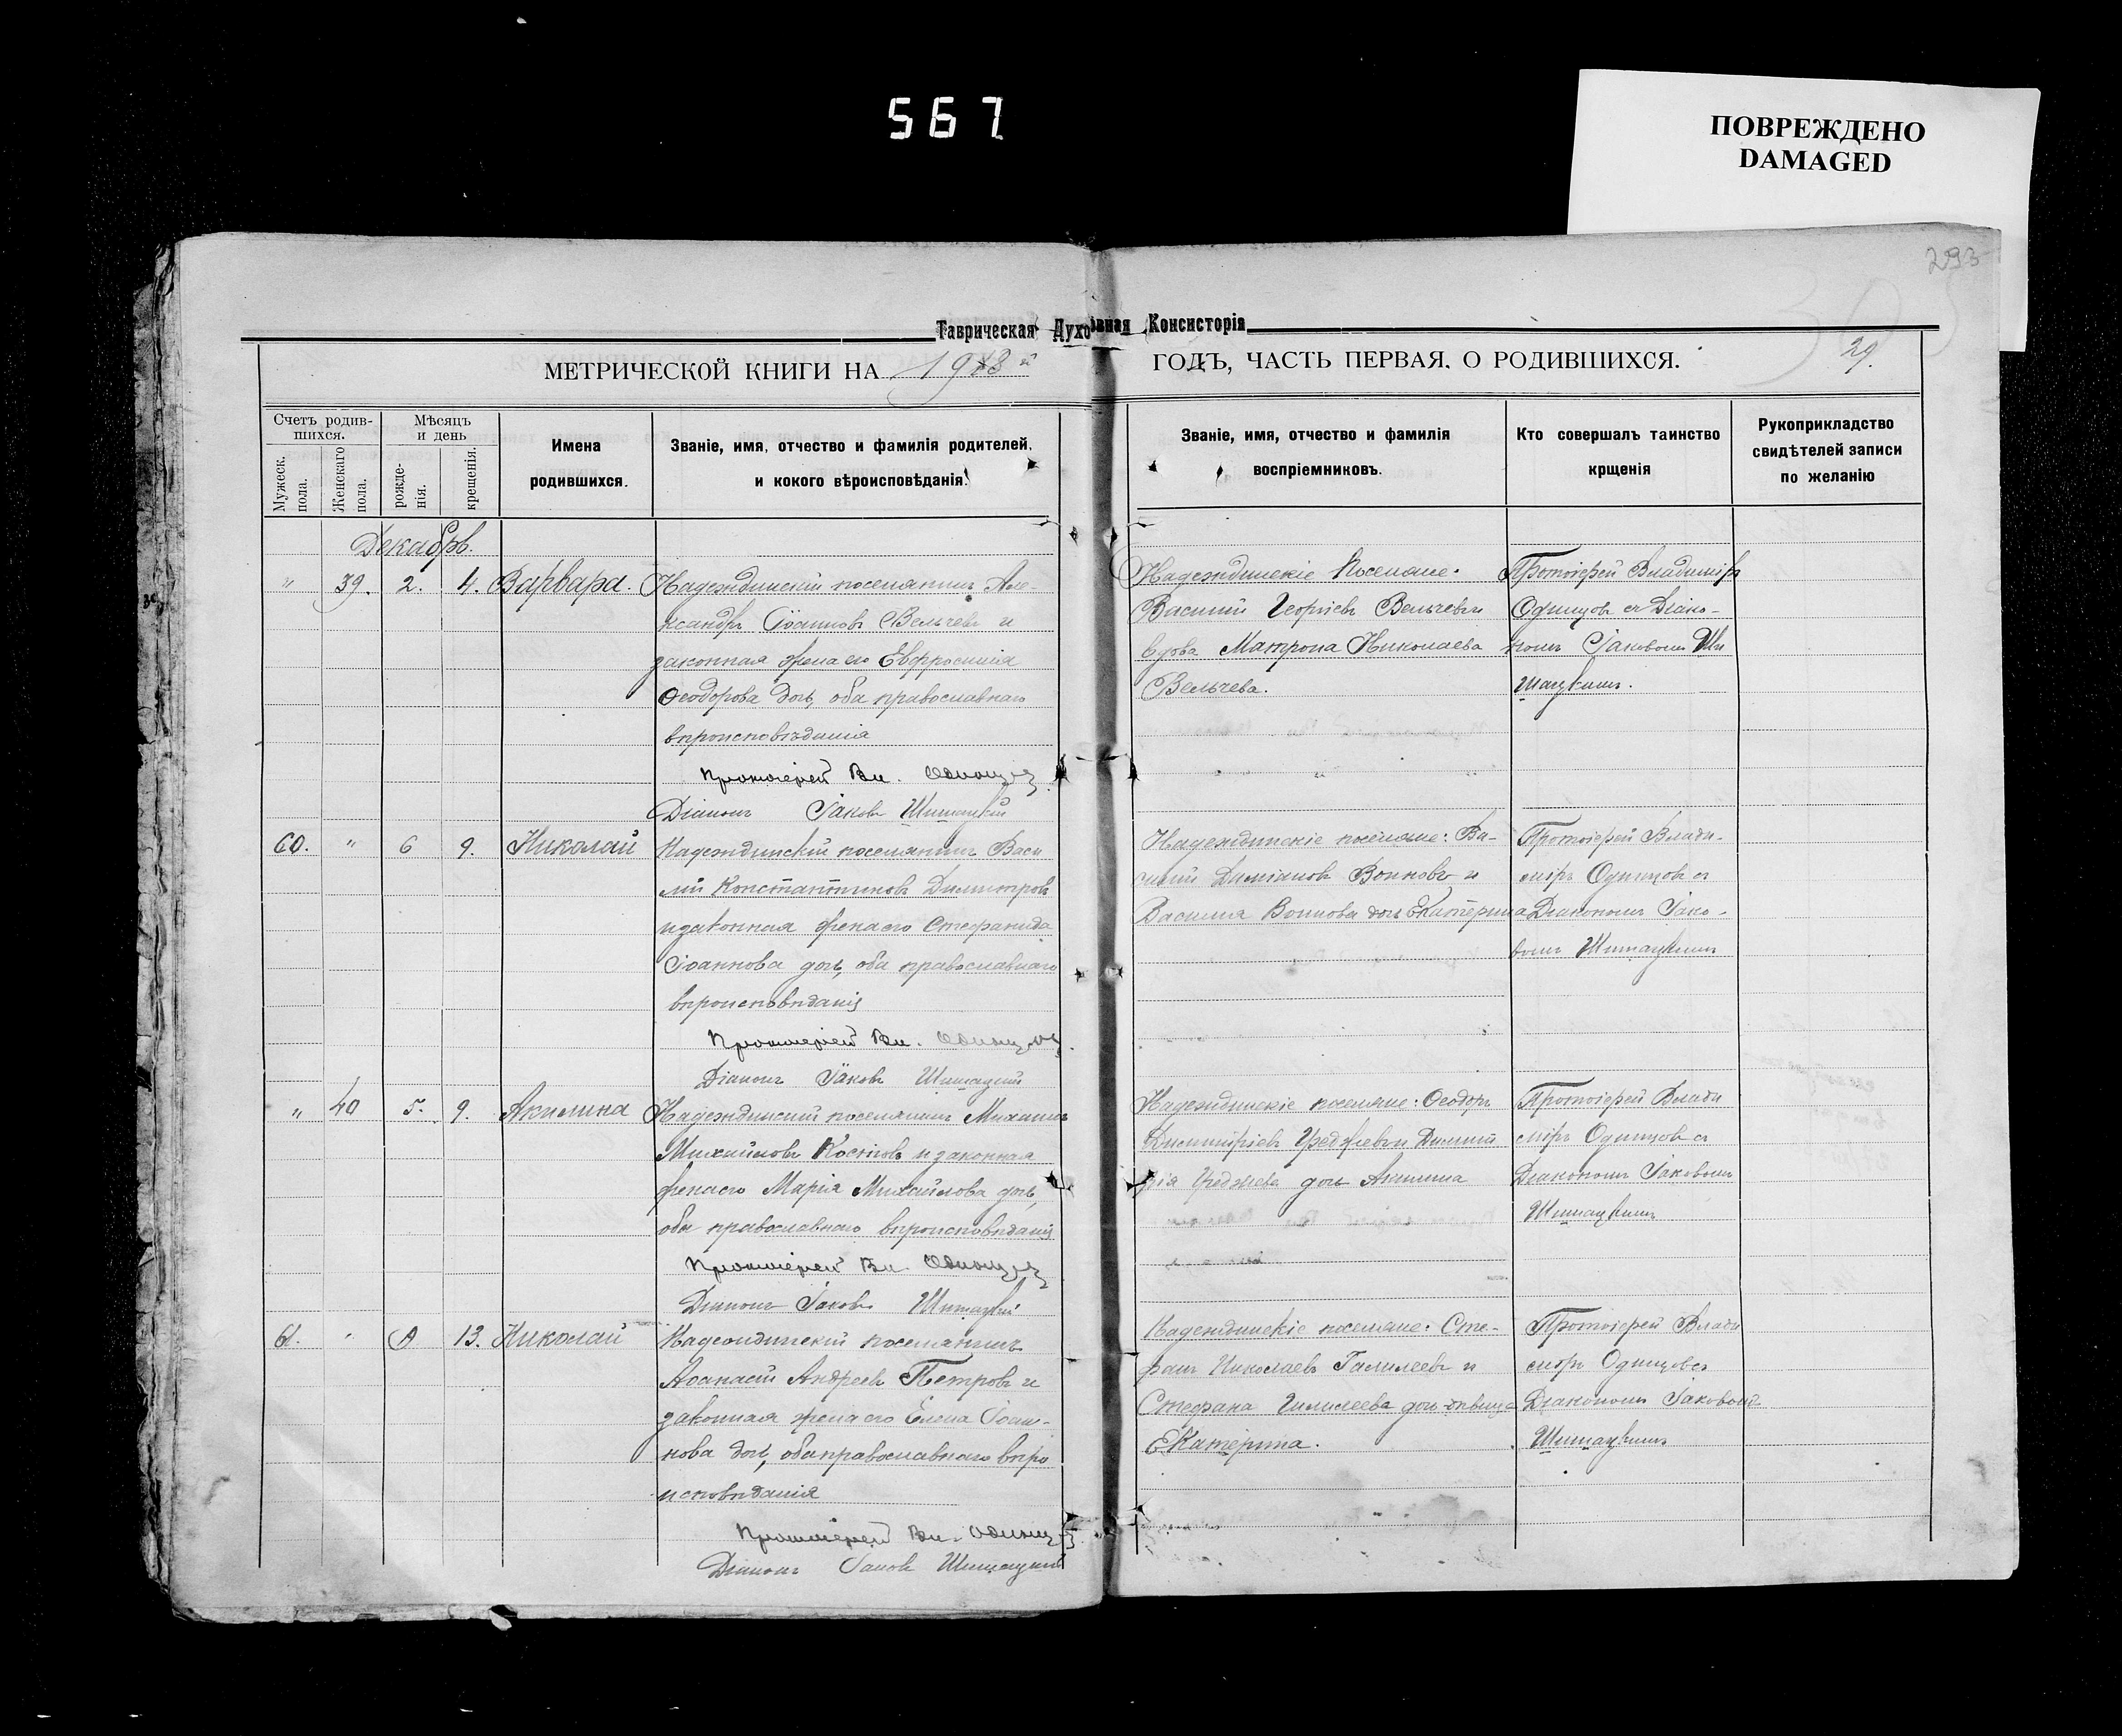 567
ПОВРЕЖДЕНО
DAMAGED
293
Таврическая Духовная Консисторія
МЕТРИЧЕСКОЙ КНИГИ НА 1913й ГОДЪ, ЧАСТЬ ПЕРВАЯ. О РОДИВШИХСЯ.
29.
Счетъ родив-
шихся.
Мужеск.
пола.
Женскаго
пола.
Мѣсяцъ
и день
рожде-
нія.
крещенія.
Имена
родившихся.
Званіе, имя, отчество и фамилія родителей,
и кокого вѣроисповѣданія.
Званіе, имя, отчество и фамилія
воспріемниковъ.
Кто совершалъ таинство
крщенія
Рукоприкладство
свидѣтелей записи
по желанію
Декабрь.
" 39. 2. 4. Варвара.
Надеждинскій поселянинъ Але-
ксандръ Іоанновъ Вельчевъ и
законная жена его Евфросинія
Ѳеодорова дочь, оба православнаго
вѣроисповѣданія
Протоіерей Вл. Одинцовъ
Діаконъ Іаковъ Шишацкій
Надеждинскіе Поселяне.
Василій Георгіевъ Вельчевъ и
вдова Матрона Николаева
Вельчева.
Протоіерей Владиміръ
Одинцовъ съ Діако-
номъ Іаковомъ Ши
шацкимъ.
60. " 6 9. Николай
Надеждинскій поселянинъ Васи
лій Константиновъ Димитровъ
и законная жена его Стефанида
Іоаннова дочь, оба православнаго
вѣроисповѣданія
Протоіерей Вл. Одинцовъ
Діаконъ Іаковъ Шишацкій
Надеждинскіе поселяне: Ва-
силій Даміановъ Войновъ и
Василія Войнова дочь Екатерина
Протоіерей Влади-
міръ Одинцовъ съ
Діакономъ Іако-
вомъ Шишацкимъ
" 40 5. 9. Акилина
Надеждинскій поселянинъ Михаилъ
Михайловъ Костовъ и законная
жена его Марія Михайлова дочь,
оба православнаго вѣроисповѣданія
Протоіерей Вл. Одинцовъ
Діаконъ Іаковъ Шишацкій
Надеждинскіе поселяне: Ѳеодоръ
Димитріевъ и Димит
рія дочь Акилина
Протоіерей Влади
міръ Одинцовъ съ
Діакономъ Іаковомъ
Шишацкимъ
61. " 13. Николай
Надеждинскій поселянинъ
Аѳанасій Андреевъ Петровъ и
законная жена его Елена Іоан-
нова дочь, оба православнаго вѣро
исповѣданія
Протоіерей Вл. Одинцовъ
Діаконъ Іаковъ Шишацкій
Надеждинскіе поселяне: Сте-
фанъ Николаевъ и
Стефана дочь дѣвица
Екатерина.
Протоіерей Влади
міръ Одинцовъ съ
Діакономъ Іаковомъ
Шишацкимъ